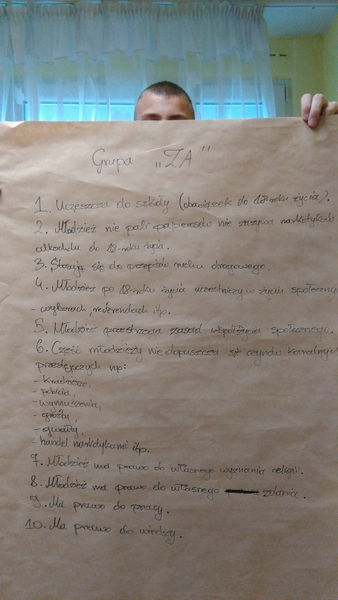 Grupa „ZA"
1. Uczęszcza do szkoły (obowiązek do 18 roku życia).
2. Młodzież nie pali papierosów nie zażywa narkotyków
alkoholu do 18-roku życia.
3. Stosują się do przepisów ruchu drogowego.
4. Młodzież po 18-roku życia uczestniczy w życiu społecznym
- wyborach, referendach itp.
5. Młodzież przestrzega zasad współżycia społecznego.
6. Część młodzieży nie dopuszcza się czynów karalnych
przestępczych np:
- kradzieże,
- pobicia,
- wymuszenia,
- groźby,
- gwałty,
- handel narkotykami itp.
7. Młodzież ma prawo do własnego wyznania religii.
8. Młodzież ma prawo do własnego zdania.
9. Ma prawo do pracy.
10. Ma prawo do wiedzy.